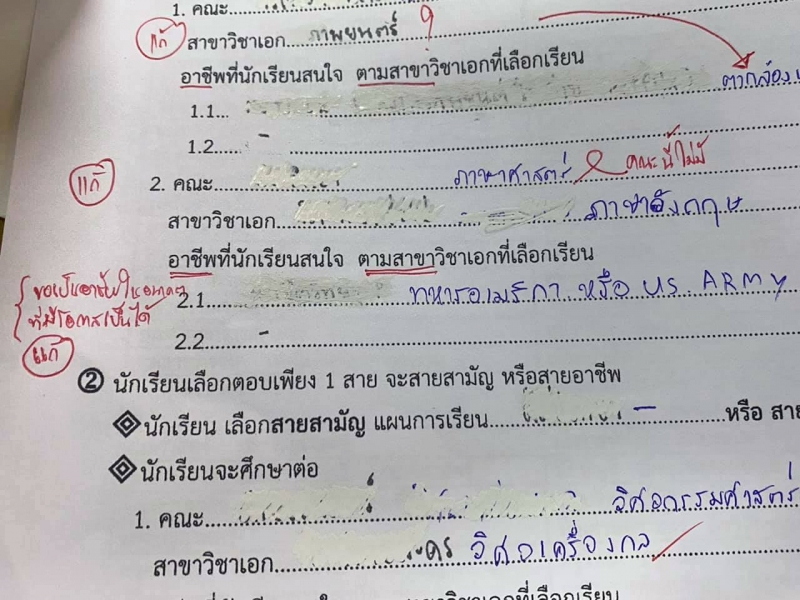 1. คณะ
แก้ สาขาวิชาเอก ภาพยนตร์ ?
อาชีพที่นักเรียนสนใจ ตามสาขาวิชาเอกที่เลือกเรียน
1.1 ตากล้อง
1.2 -
แก้ 2. คณะ ภาษาศาสตร์ คณะนี้ไม่มี
สาขาวิชาเอก ภาษาอังกฤษ
อาชีพที่นักเรียนสนใจ ตามสาขาวิชาเอกที่เลือกเรียน
ขอเป็นอาชีพในอนาคต
ที่มีโอกาสเป็นได้
แก้
2.1 ทหารอเมริกา หรือ US ARMY
2.2 -
② นักเรียนเลือกตอบเพียง 1 สาย จะสายสามัญ หรือสายอาชีพ
นักเรียน เลือกสายสามัญ แผนการเรียน - หรือ สาย
นักเรียนจะศึกษาต่อ
1. คณะ วิศวกรรมศาสตร์
สาขาวิชาเอก วิศวเครื่องกล
วิชาเอกที่เลือกเรียน